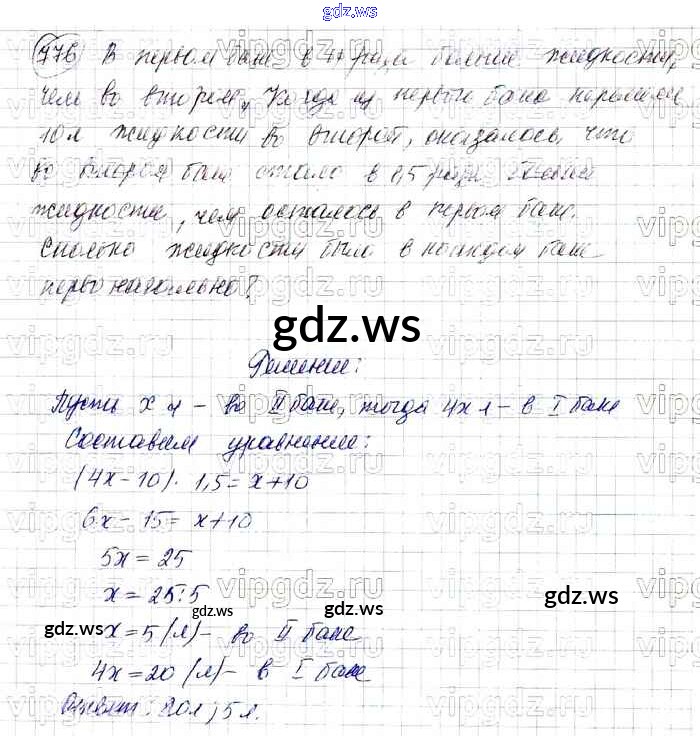 gdz.ws
776 В первом баке в 4 раза больше жидкости,
чем во втором. Когда из первого бака перелили
10 л жидкости во второй, оказалось, что
во втором баке стало в 1,5 раза больше
жидкости, чем осталось в первом баке.
Сколько жидкости было в каждом баке
первоначально?
gdz.ws
Решение:
Пусть x л – во II баке, тогда 4x л – в I баке
Составим уравнение:
(4x – 10) · 1,5 = x + 10
6x – 15 = x + 10
5x = 25
x = 25 : 5
gdz.ws gdz.ws gdz.ws
x = 5 (л) – во II баке
4x = 20 (л) – в I баке
Ответ: 20 л; 5 л.